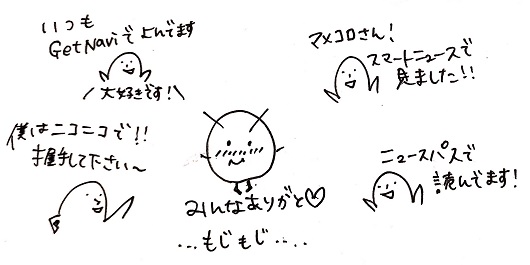 いつも
GetNaviでよんでます
大好きです!
マメコロさん!
スマートニュースで
見ました!!
僕はニコニコで!!
握手して下さい〜
みんなありがと♡
…もじもじ….
ニュースパスで
読んでます!